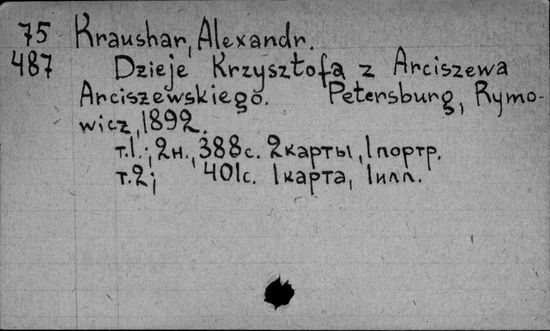 75 Kraushar, Alexandr.
487 Dzieje Krzysztofa z Arciszewa
Arciszewskiego. Petersburg, Rymo-
wicz, 1892.
т.1.; 2н., 388с. 2карты, 1портр.
т.2; 401с. 1карта, 1илл.